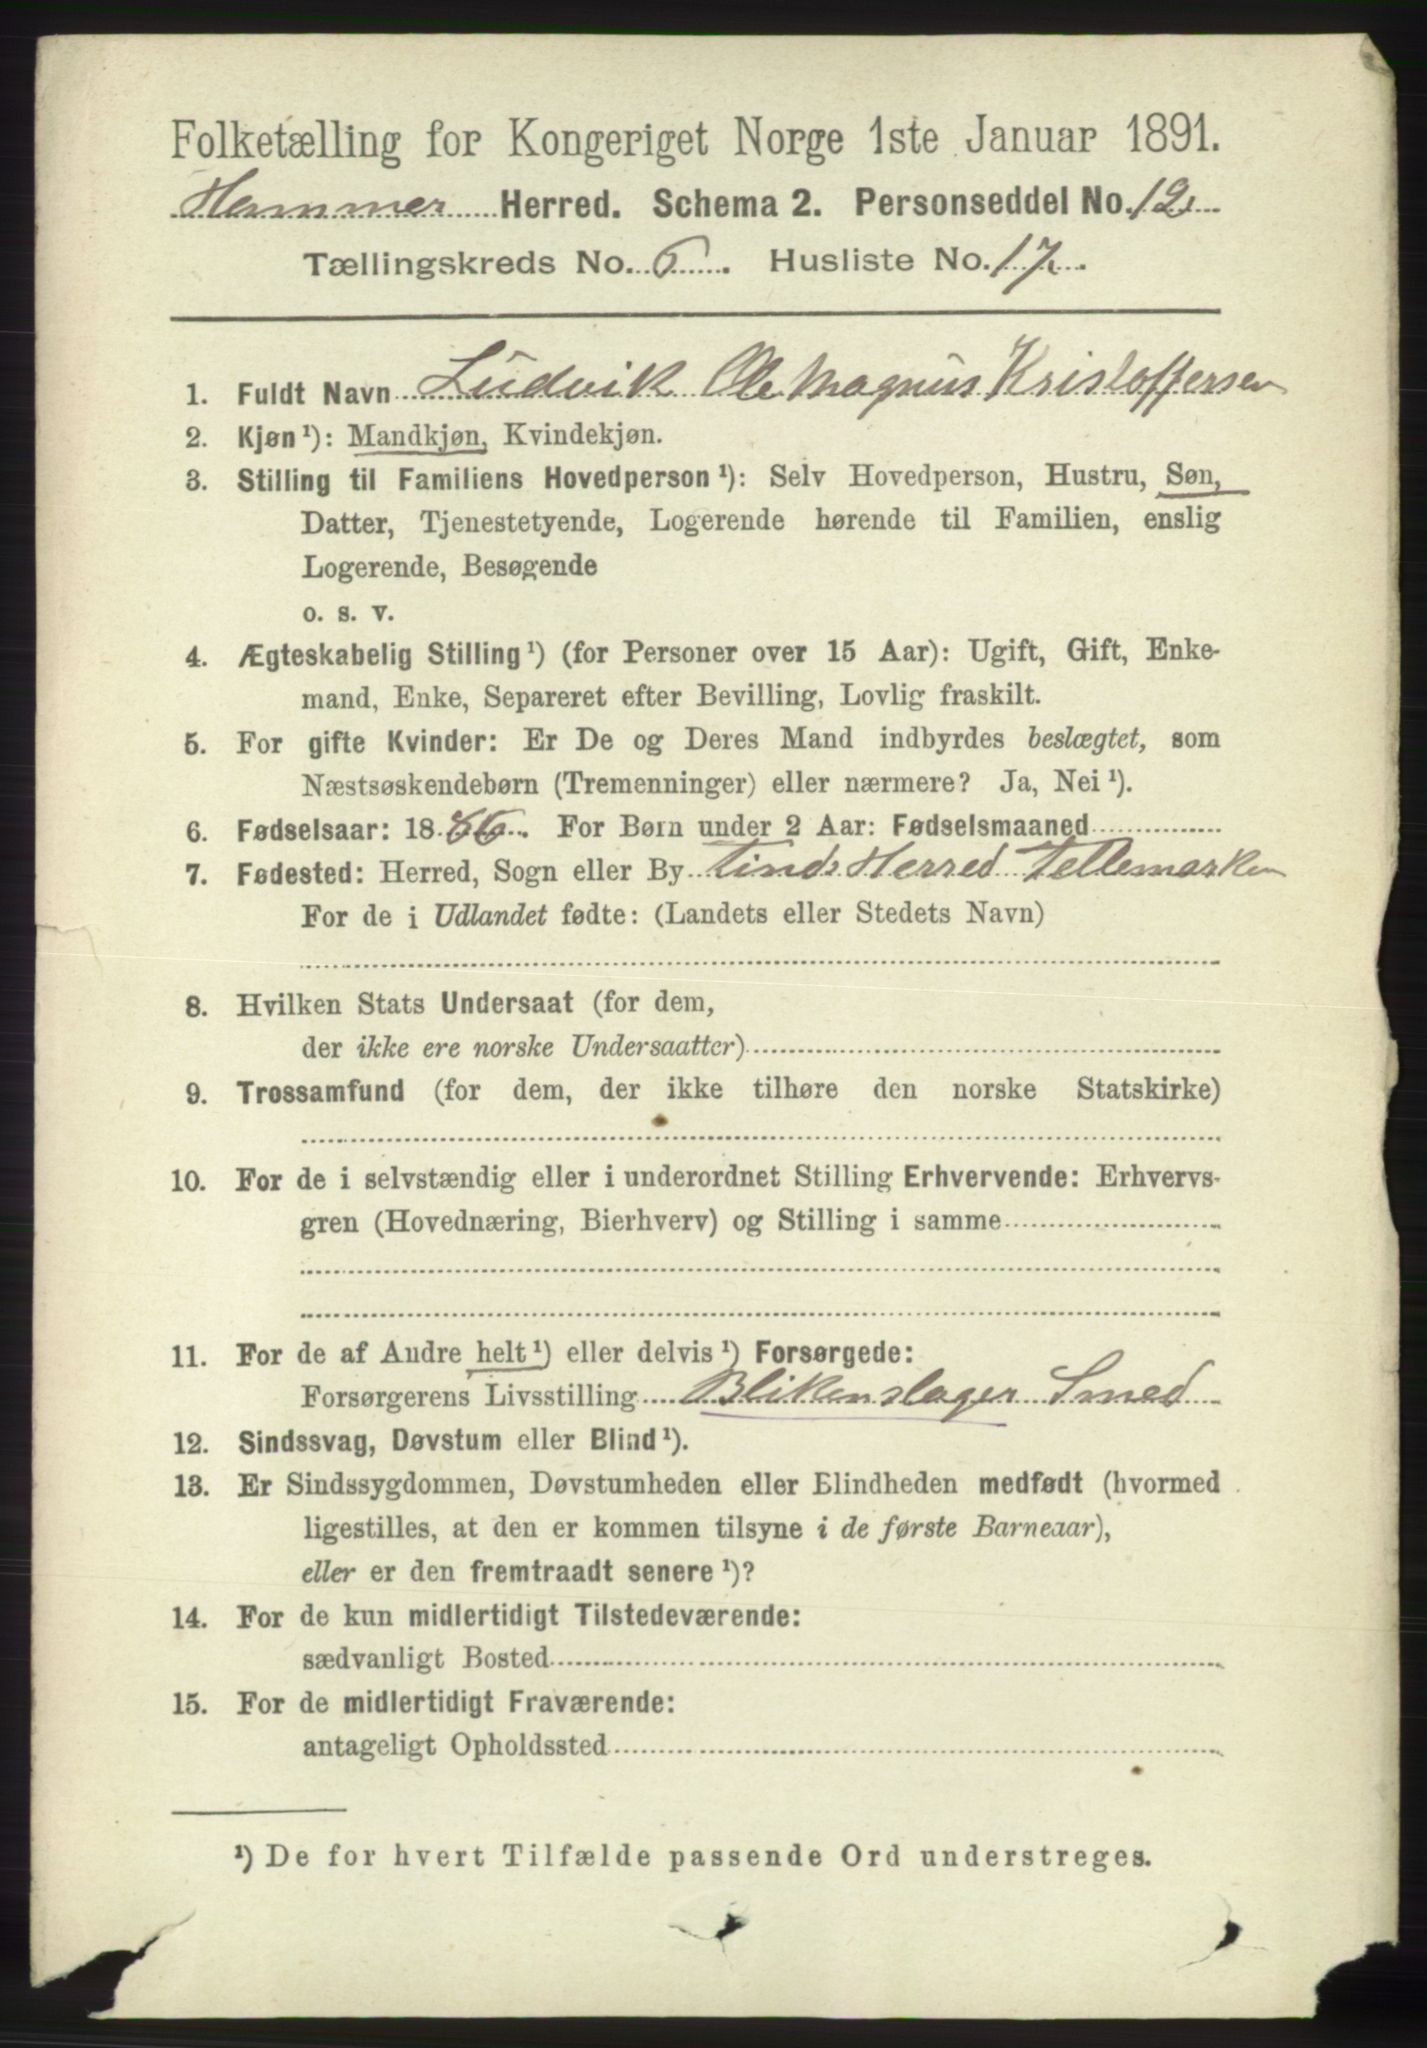 Folketælling for Kongeriget Norge 1ste Januar 1891.
Hammer Herred. Schema 2. Personseddel No. 12,
Tællingskreds No. 6. Husliste No. 17,
1. Fuldt Navn Ludvik Ole Magnus Kristoffersen
2. Kjøn¹): Mandkjøn, Kvindekjøn.
3. Stilling til Familiens Hovedperson¹): Selv Hovedperson, Hustru, Søn,
Datter, Tjenestetyende, Logerende hørende til Familien, enslig
Logerende, Besøgende
o. s. v.
4. Ægteskabelig Stilling¹) (for Personer over 15 Aar): Ugift, Gift, Enke-
mand, Enke, Separeret efter Bevilling, Lovlig fraskilt.
5. For gifte Kvinder: Er De og Deres Mand indbyrdes beslægtet, som
Næstsøskendebørn (Tremenninger) eller nærmere? Ja, Nei¹).
6. Fødselsaar: 1886. For Børn under 2 Aar: Fødselsmaaned
7. Fødested: Herred, Sogn eller By Tinds Herred Tellemarken
For de i Udlandet fødte: (Landets eller Stedets Navn)
8. Hvilken Stats Undersaat (for dem,
der ikke ere norske Undersaatter)
9. Trossamfund (for dem, der ikke tilhøre den norske Statskirke)
10. For de i selvstændig eller i underordnet Stilling Erhvervende: Erhvervs-
gren (Hovednæring, Bierhverv) og Stilling i samme
11. For de af Andre helt¹) eller delvis¹) Forsørgede:
Forsørgerens Livsstilling Blikenslager Smed
12. Sindssvag, Døvstum eller Blind¹).
13. Er Sindssygdommen, Døvstumheden eller Blindheden medfødt (hvormed
ligestilles, at den er kommen tilsyne i de første Barneaar),
eller er den fremtraadt senere¹)?
14. For de kun midlertidigt Tilstedeværende:
sædvanligt Bosted
15. For de midlertidigt Fraværende:
antageligt Opholdssted
¹) De for hvert Tilfælde passende Ord understreges.